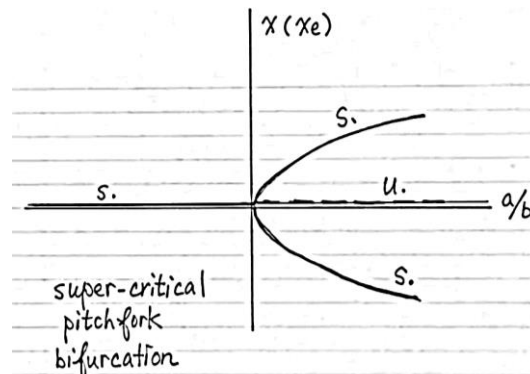 x (xe)
S.
s.
u.
a/b
S.
super-critical
pitchfork
bifurcation